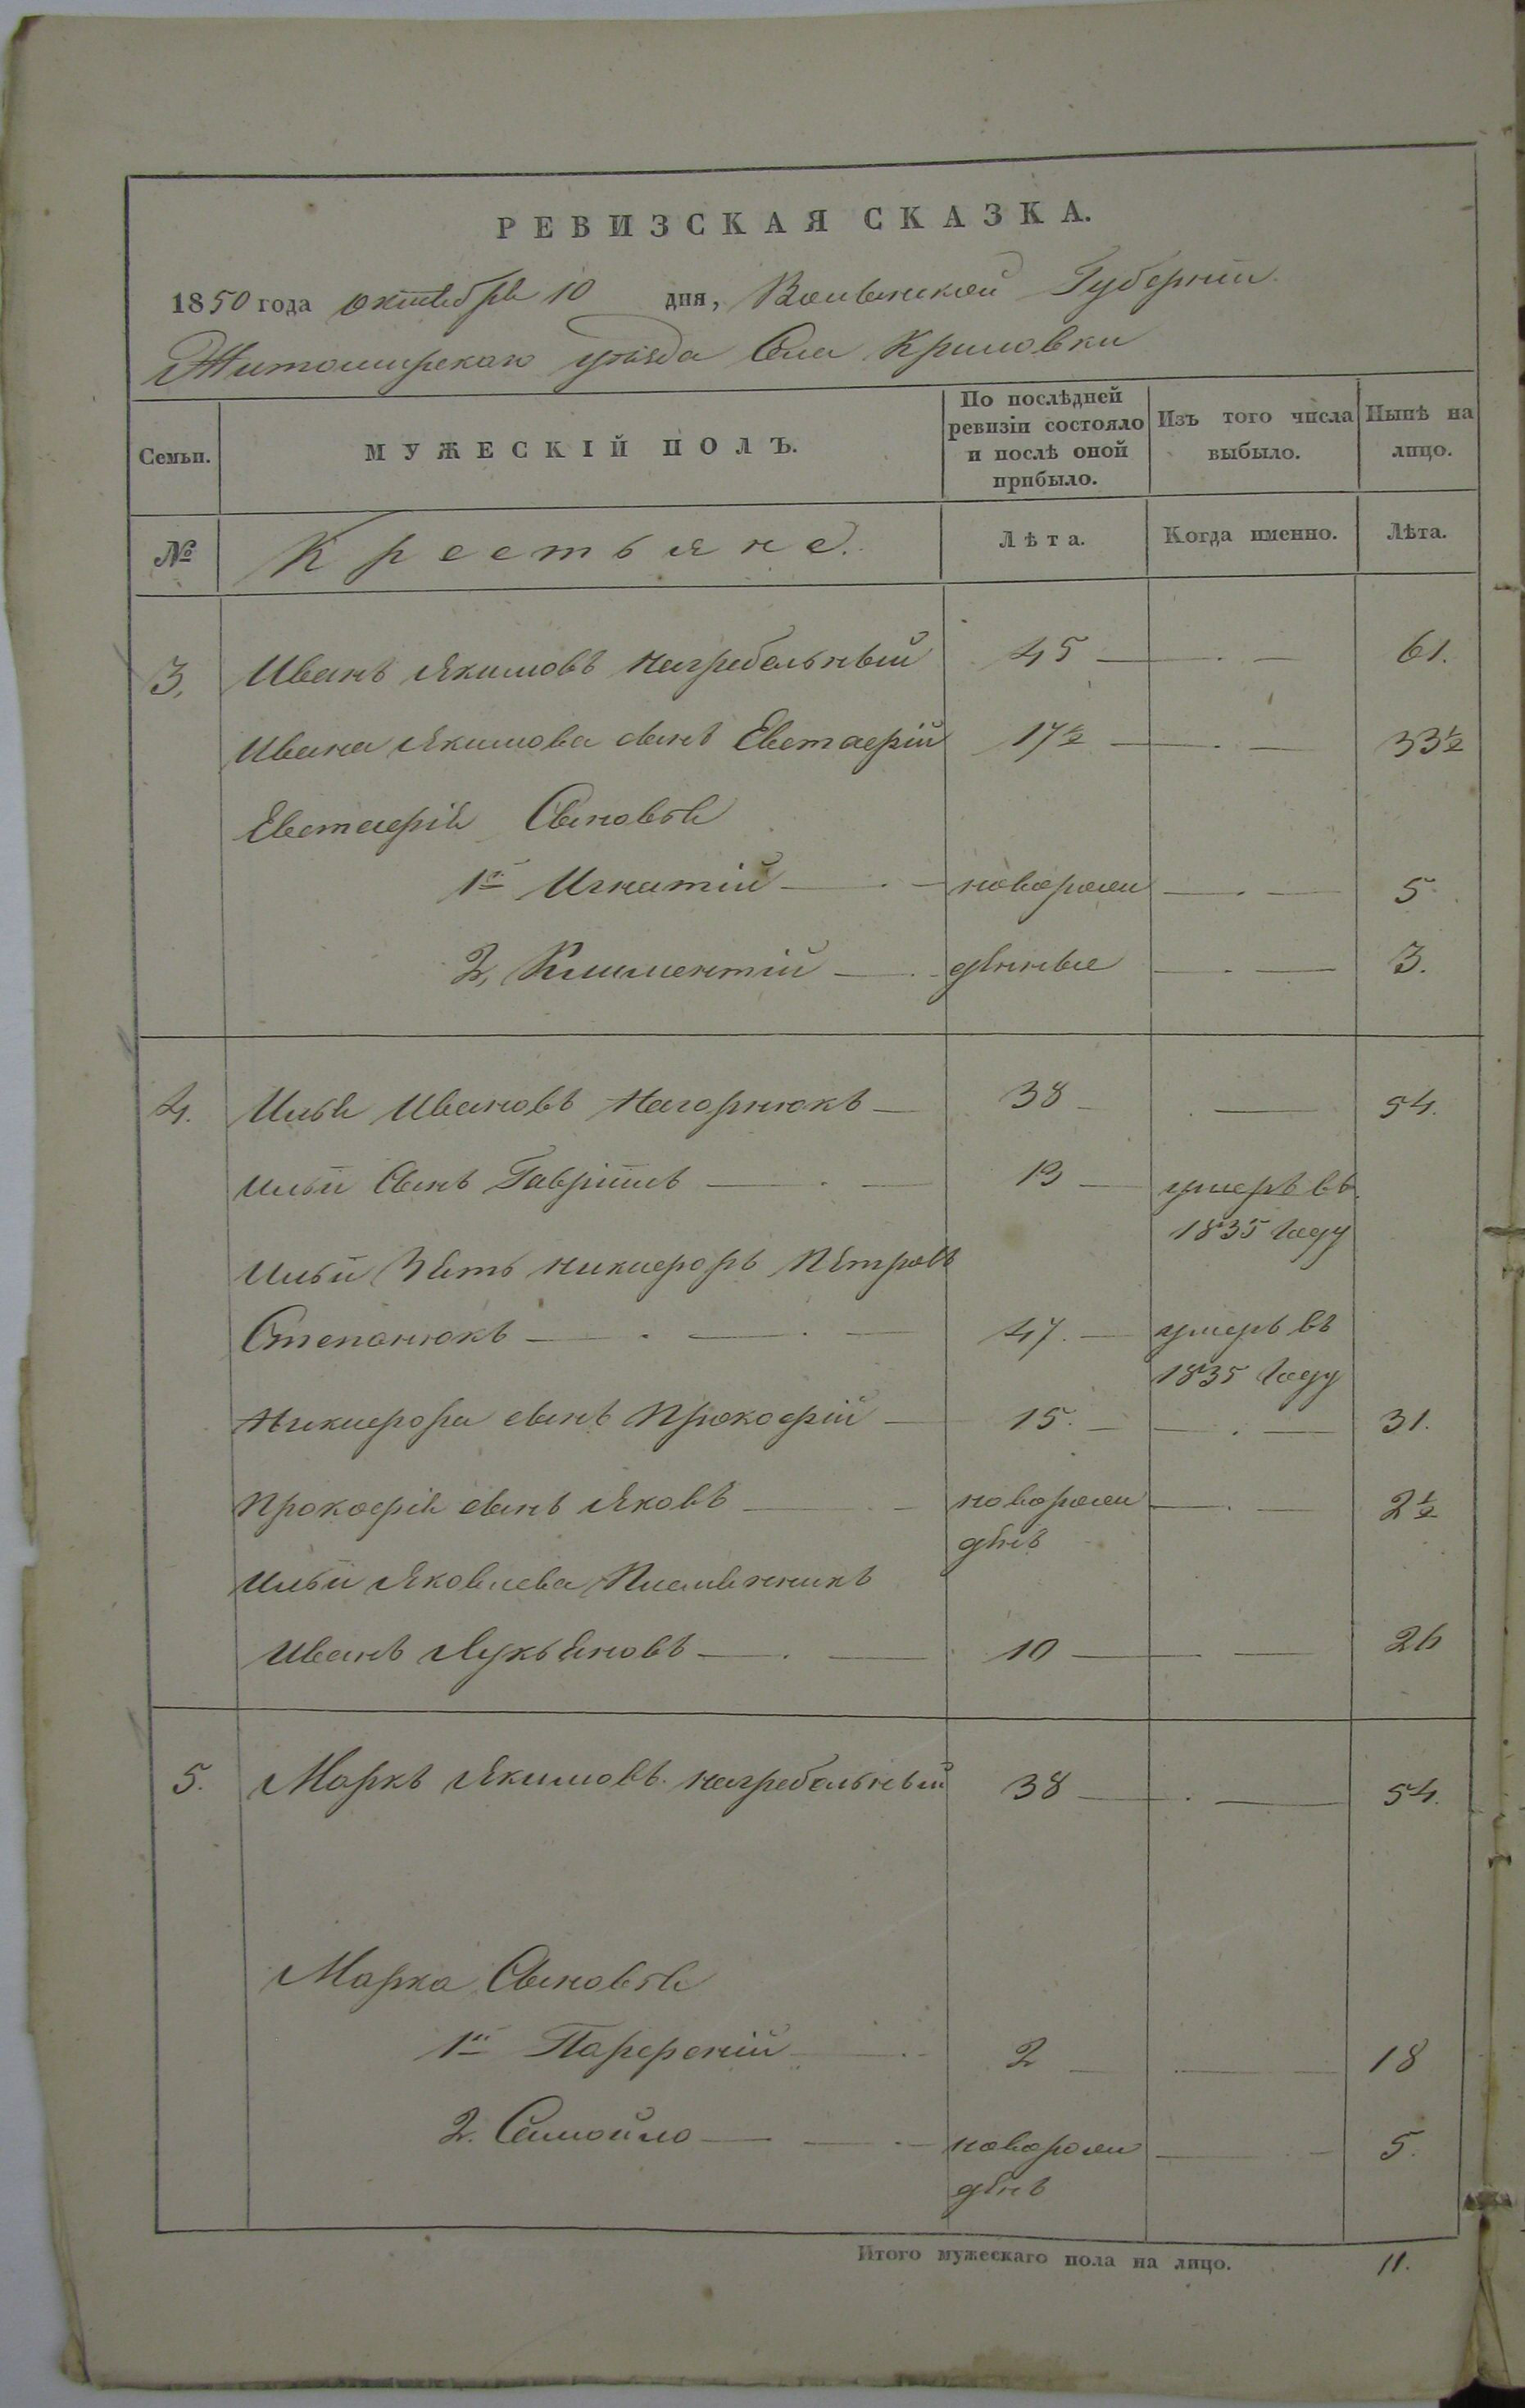 РЕВИЗСКАЯ СКАЗКА.
1850 года октября 10 дня, Волынской Губернии
Житомирскаго уѣзда Села Крыловки
Семьи.
МУЖЕСКІЙ ПОЛЪ.
По послѣдней
ревизіи состояло
и послѣ оной
прибыло.
Изъ того числа
выбыло.
Нынѣ на
лицо.
№
Крестьяне.
Лѣта.
Когда именно.
Лѣта.
3. Иванъ Якимовъ Нагребельный 45 — . — 61.
Ивана Якимова сынъ Евстафій 17½ — . — 33½
Евстафія Сыновья
1й Игнатій — . — новорож — . — 5
2, Климентій — . денные — . — 3.
4. Илья Ивановъ Нагорнюкъ — 38 — . — 54.
Ильи Сынъ Гавріилъ — . — 13 — умеръ въ
1835 Году
Ильи Зять Никифоръ Петровъ
Степанюкъ — . — . — 47. — умеръ въ
1835 Году
Никифора сынъ Прокофій — 15. — — . — 31.
Прокофія сынъ Яковъ — — новорож — . — 2½
денъ
Ильи Яковлева Племянникъ
Иванъ Лукьяновъ — . — 10 — — 26
5. Маркъ Якимовъ Нагребельный 38 — . — 54.
Марка Сыновья
1й Парфеній — . — 2 — . — — 18
2. Самойло — — . — новорож — — 5.
денъ
Итого мужескаго пола на лицо. 11.